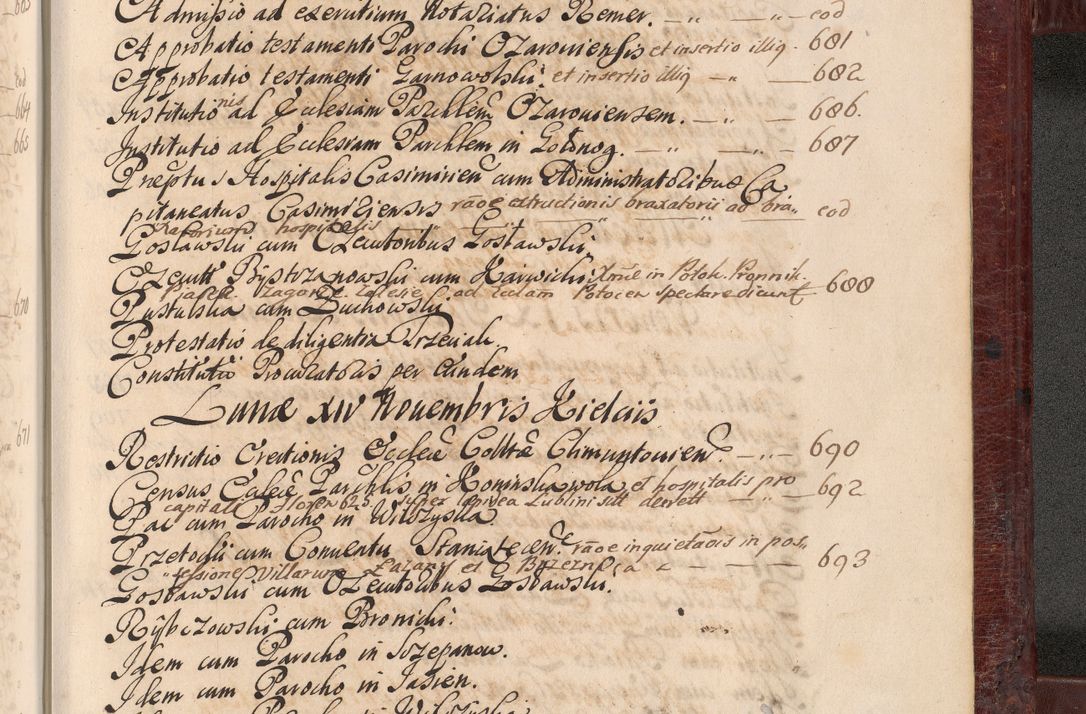 Admissio ad exercitium Notariatus Remer. — „ — „ — eod
Approbatio testamenti Parochi Ozaroviensis et insertio illiq. 681
Approbatio testamenti Garnowolski et insertio illiq — „ — 682
Institutionis ad Ecclesiam Parchlem Ozaroviensem. — „ — 686.
Institutio ad Ecclesiam Parchlem in Golonog. — „ — „ — 687
Præptus Hospitalis Casimirien cum Administratoribus Ca
pitaneatus Casimiriensis raõe extructionis braxatorii ad bra„ — eod
xatorium hospitalis
Gosławski cum Executoribus Gosławski
Executt Bystrzanowski cum Karwicki Xme in Potok. Propnik. 688
Pustulska cum Duchowski
ad Eccłam Potocen spectare dicunt
Protestatio de diligentia Trzeciak.
Constitutio Procuratoris per eundem
Lunæ XIV Novembris Kielciis
Restrictio Erectionis Eccleæ Colltæ Climuntovien — „ — 690
Census Eccleæ Parchlis in Konińskawola et hospitalis pro — 692
capitali floren 625 super lapidea Lublini sitt derrett
Pac cum Parocho in Wilczyska
Przetocki cum Conventu Staniątecen. raõe inquietaõis in pos„ 693
sessione Villarum Łazany et Brzezniça
Gosławski cum Executoribus Gosławski.
Rÿbczowski cum Bronicki.
Idem cum Parocho in Szczepanow.
Idem cum Parocho in Jasien.
665
eod
664
665
670
671